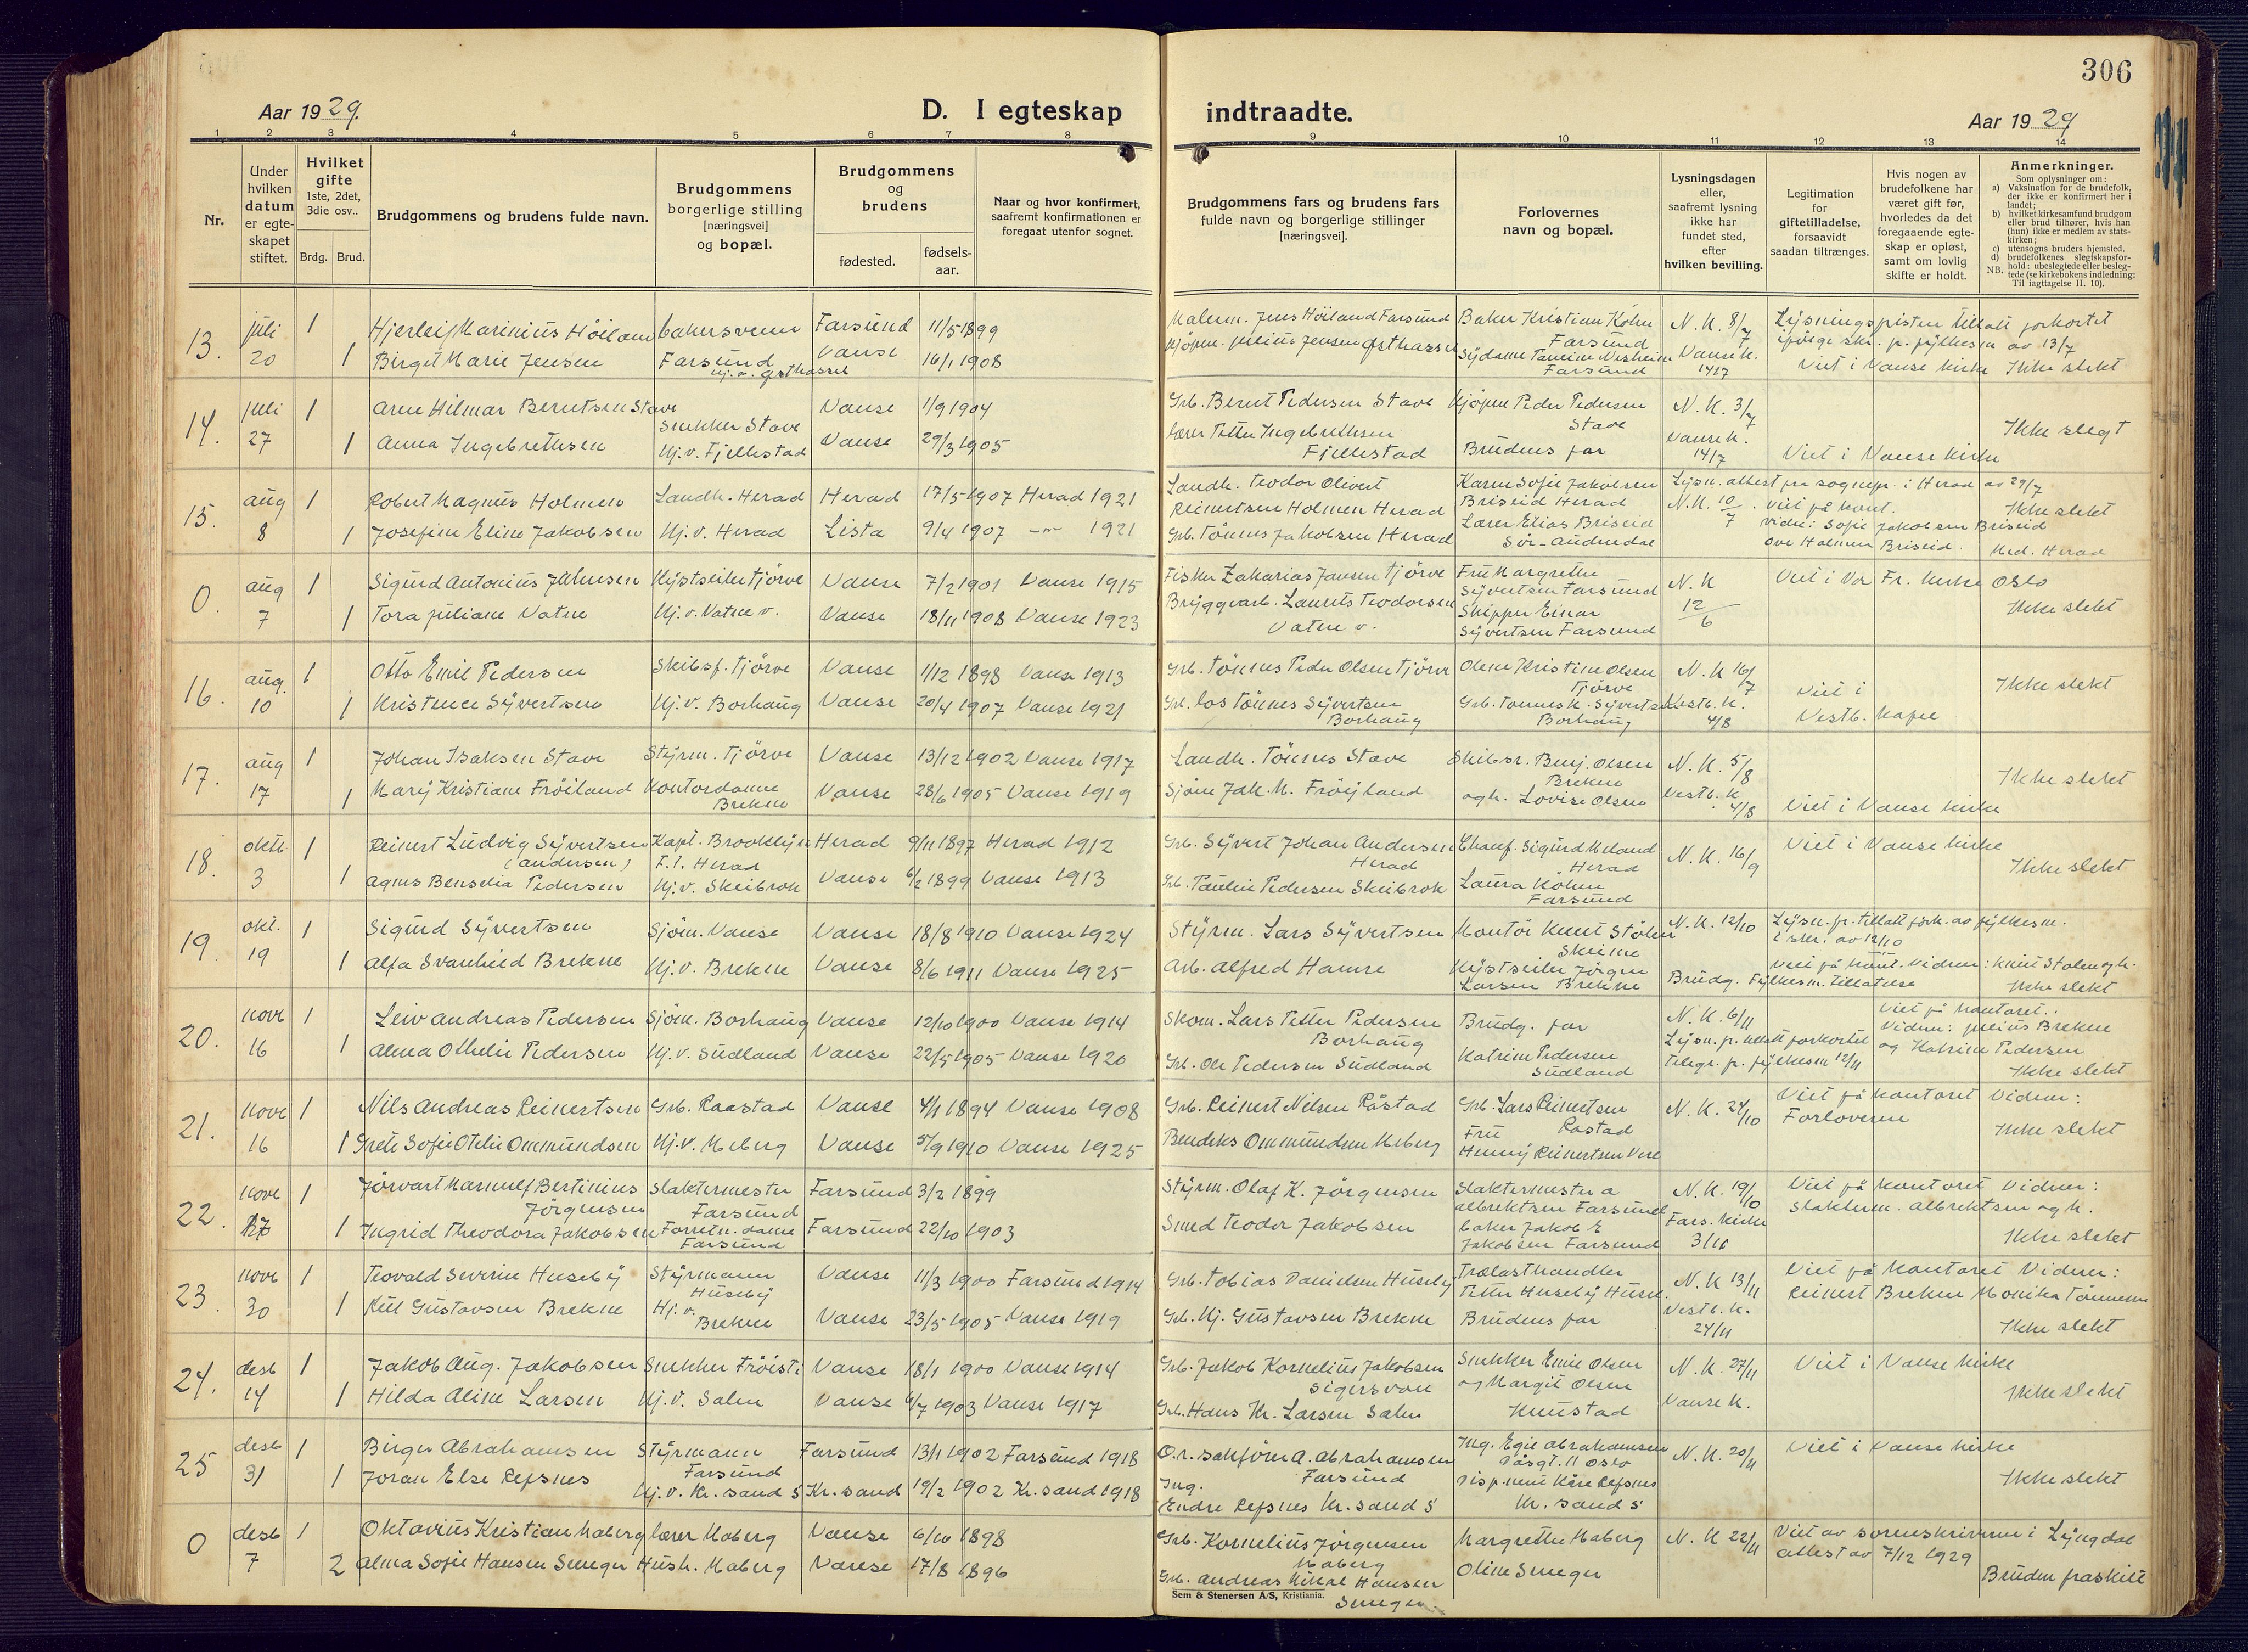 306
Aar 1929.
D. I egteskap
indtraadte.
Aar 1929
1 2 3 4 5 6 7 8 9 10 11 12 13 14
Nr.
Under hvilken datum er egteskapet stiftet.
Hvilket gifte 1ste, 2det, 3die osv..
Brdg. Brud.
Brudgommens og brudens fulde navn.
Brudgommens borgerlige stilling [næringsvei] og bopæl.
Brudgommens og brudens
fødested.
fødselsaar.
Naar og hvor konfirmert, saafremt konfirmationen er foregaat utenfor sognet.
Brudgommens fars og brudens fars fulde navn og borgerlige stillinger [næringsvei].
Forlovernes navn og bopæl.
Lysningsdagen eller, saafremt lysning ikke har fundet sted, efter hvilken bevilling.
Legitimation for giftetilladelse, forsaavidt saadan tiltrænges.
Hvis nogen av brudefolkene har været gift før, hvorledes da det foregaaende egteskap er opløst, samt om lovlig skifte er holdt.
Anmerkninger.
Som oplysninger om:
a) Vaksination for de brudefolk, der ikke er konfirmert her i landet;
b) hvilket kirkesamfund brudgom eller brud tilhører, hvis han (hun) ikke er medlem av statskirken;
c) utensogns bruders hjemsted.
d) brudefolkenes slegtskapsforhold: ubeslegtede eller beslegtede (se kirkebokens indledning:
NB. Til iagttagelse II. 10).
13. juli 20 1 Hjerleif Marinius Höiland bakersvenn Farsund Farsund 11/5 1899
1 Birgit Marie Jensen Hj. v. Østhassel Vanse 16/1 1908
Malerm. Jens Höiland Farsund Baker Kristian Köhn Farsund N. K. 8/7 Lysningspisten tillatt forkortet
Kjöpm. Julius Jensen Østhassel Sydame Taneine Nesheim Farsund Vanse k. 14/7 ifölge skr. p. fylkesm av 13/7
Viet i Vanse kirke Ikke slekt
14. juli 27 1 Arne Hilmar Berntsen Stave Snekker Stave Vanse 1/9 1904
1 Anna Ingebrethsen Hj. v. Fjellestad Vanse 29/3 1905
Grb. Bernt Pedersen Stave Kjöpm Peder Pedersen Stave N. K. 3/7
Lærer Petter Ingebrethsen Fjellestad Brudens far Vanse k. 14/7 Viet i Vanse kirke Ikke slegt
15. aug 8 1 Robert Magnus Holmen Landh. Herad Herad 17/5 1907 Herad 1921
1 Josefine Eline Jakobsen Hj. v. Herad Lista 9/4 1907 -"- 1921
Landh. Teodor Olivert Reinertsen Holmen Herad Karen Sofie Jakobsen Briseid Herad N. K. 10/7 Lysn. attest fra sognepr. i Herad av 29/7
Grb. Tönnes Jakobsen Herad Lærer Elias Briseid Sör-Audnedal Viet på kont. Ikke slekt
Vidn: Sofie Jakobsen Briseid
Ove Holmen Briseid. Med. Herad
0. aug 7 1 Sigurd Antonius Johnsen Kystseiler Tjörve Vanse 7/2 1901 Vanse 1915
1 Tora Juliane Vatne Hj. v. Vatne v. Vanse 18/11 1908 Vanse 1923
Fisker Zakarias Jansen Tjörve Fru Margrethe Syvertsen Farsund N. K 12/6 Viet i Vor Fr. kirke Oslo
Bryggearb. Laurits Teodorsen Vatne v. Skipper Einar Syvertsen Farsund Ikke slekt
16. aug. 10 1 Otto Emil Pedersen Skibsf. Tjörve Vanse 1/12 1898 Vanse 1913
1 Kristence Syvertsen Hj. v. Borhaug Vanse 20/4 1907 Vanse 1921
Grb. Tönnes Peder Olsen Tjörve Olene Kristine Olsen Tjörve N. K 16/7 Viet i Vestb. kapel Ikke slekt
Grb. los Tönnes Syvertsen Borhaug Grb. Tönnes K. Syvertsen Borhaug Vestb. K. 4/8
17. aug 17 1 Johan Isaksen Stave Styrm. Tjörve Vanse 13/12 1902 Vanse 1917
1 Mary Kristiane Fröiland Kontordame Brekne Vanse 28/6 1905 Vanse 1919
Landh. Tönnes Stave Skibsr. Benj. Olsen Brekne N. K. 5/8 Ikke slekt
Sjöm Jak. M. Fröyland og h. Lovise Olsen Vestb. K 4/8 Viet i Vanse kirke
18. oktb. 3 1 Reinert Ludvig Syvertsen (Andersen) Kapt. Brooklyn F. t. Herad Herad 9/11 1897 Herad 1912
1 Agnes Bensevia Pedersen Hj. v. Skeibrok Vanse 6/2 1899 Vanse 1913
Grb. Syvert Johan Andersen Herad Chauf. Sigurd Meland Herad N. K. 16/9 Viet i Vanse kirke
Grb. Paulin Pedersen Skeibrok Laura Köhn Farsund Ikke slekt
19. okt. 19 1 Sigurd Syvertsen Sjöm. Vanse Vanse 18/8 1910 Vanse 1924
1 Alfa Svanhild Brekne Hj. v. Brekne Vanse 8/6 1911 Vanse 1925
Styrm. Lars Syvertsen Montör Knut Stölen Skeime N. K. 12/10 Lysn. pr. tillatt fork. av fylkesm. i skr. av 12/10
Arb. Alfred Hamre Kystseiler Jörgen Larsen Brekne Brudg. Fylkesm. tillatelse Viet på kont. Vidner: Knut Stölen og h. Ikke slekt
20. novb 16 1 Leiv Andreas Pedersen Sjöm. Borhaug Vanse 12/10 1900 Vanse 1914
1 Alma Othelie Pedersen Hj. v. Sudland Vanse 22/5 1905 Vanse 1920
Skom. Lars Petter Pedersen Borhaug Brudg. far N. K. 6/11 Viet på kontoret.
Grb. Ole Pedersen Sudland Katrine Pedersen Sudland Lysn. p. tillatt forkortet Telegr. p. fylkesm 12/11 Vidner: Julius Brekne og Katrine Pedersen Ikke slekt
21. novb 16 1 Nils Andreas Reinertsen Grb. Raastad Vanse 4/1 1894 Vanse 1908
1 Grete Sofie Otelie Ommundsen Hj. v. Meberg Vanse 5/9 1910 Vanse 1925
Grb. Reinert Nilsen Råstad Grb. Lars Reinertsen Rastad N. K. 24/10 Viet på kontoret Vidner: Forloverne
Bendiks Ommundsen Meberg Fru Henny Reinertsen Vere Ikke slekt
22. novb 17 1 Jörvart Marnulf Bertinius Jörgensen Slaktermester Farsund Farsund 3/2 1899
1 Ingrid Theodora Jakobsen Forretn. dame Farsund Farsund 22/10 1903
Styrm. Olaf K. Jörgensen Slaktermester A Albrektsen Farsund N. K. 19/10 Viet på kontoret Vidner: Slakterm. Albrektsen og h.
Smed Teodor Jakobsen baker Jakob E Jakobsen Farsund Fars. kirke 3/11 Ikke slekt
23. novb 30 1 Teovald Severin Huseby Styrmann Huseby Vanse 11/3 1900 Farsund 1914
1 Gustavsen Brekne Hj. v. Brekne Vanse 23/5 1905 Vanse 1919
Grb. Tobias Danielsen Huseby Trælasthandler Petter Huseby Huseb. N. K 13/11 Viet på kontoret Vidner: Reinert Brekne Monika Tönnessen
Grb. Hj. Gustavsen Brekne Brudens far Vestb. K. 24/11 Ikke slekt
24. desb 14 1 Jakob Aug. Jakobsen Snekker Fröisti Vanse 18/1 1900 Vanse 1914
1 Hilda Aline Larsen Hj. v. Salen Vanse 6/7 1903 Vanse 1917
Grb. Jakob Kornelius Jakobsen Sigersvoll Snekker Emil Olsen og Margit Olsen Knustad N. K. 27/11 Viet i Vanse kirke
Grb. Hans Kr. Larsen Salen Vanse K. Ikke slekt
25 desb 31 1 Birger Abrahamsen Styrmann Farsund Farsund 13/1 1902 Farsund 1918
1 Joran Else Refsnes Hj. v. Kr. sand S Kr. sand 19/2 1902 Kr. sand 1918
O.r. sakförer A. Abrahamsen Farsund Ing. Egil Abrahamsen 11 Oslo N. K. 20/11 Viet i Vanse kirke
Ing. Endre Refsnes Kr. sand S Kåre Refsnes Kr. sand S Ikke slekt
0 desb 7 1 Oktavius Kristian Maberg lærer Maberg Vanse 6/10 1898
2 Alma Sofie Hansen Smeger Hush. Maberg Vanse 17/8 1896
Grb. Kornelius Jörgensen Maberg Margrethe Maberg N. K 22/11 Viet av sorenskriveren i Lyngdal attest av 7/12 1929
Grb. Andreas Mikal Hansen Smeger Oline Smeger Bruden fraskilt
Sem & Stenersen A/S, Kristiania.